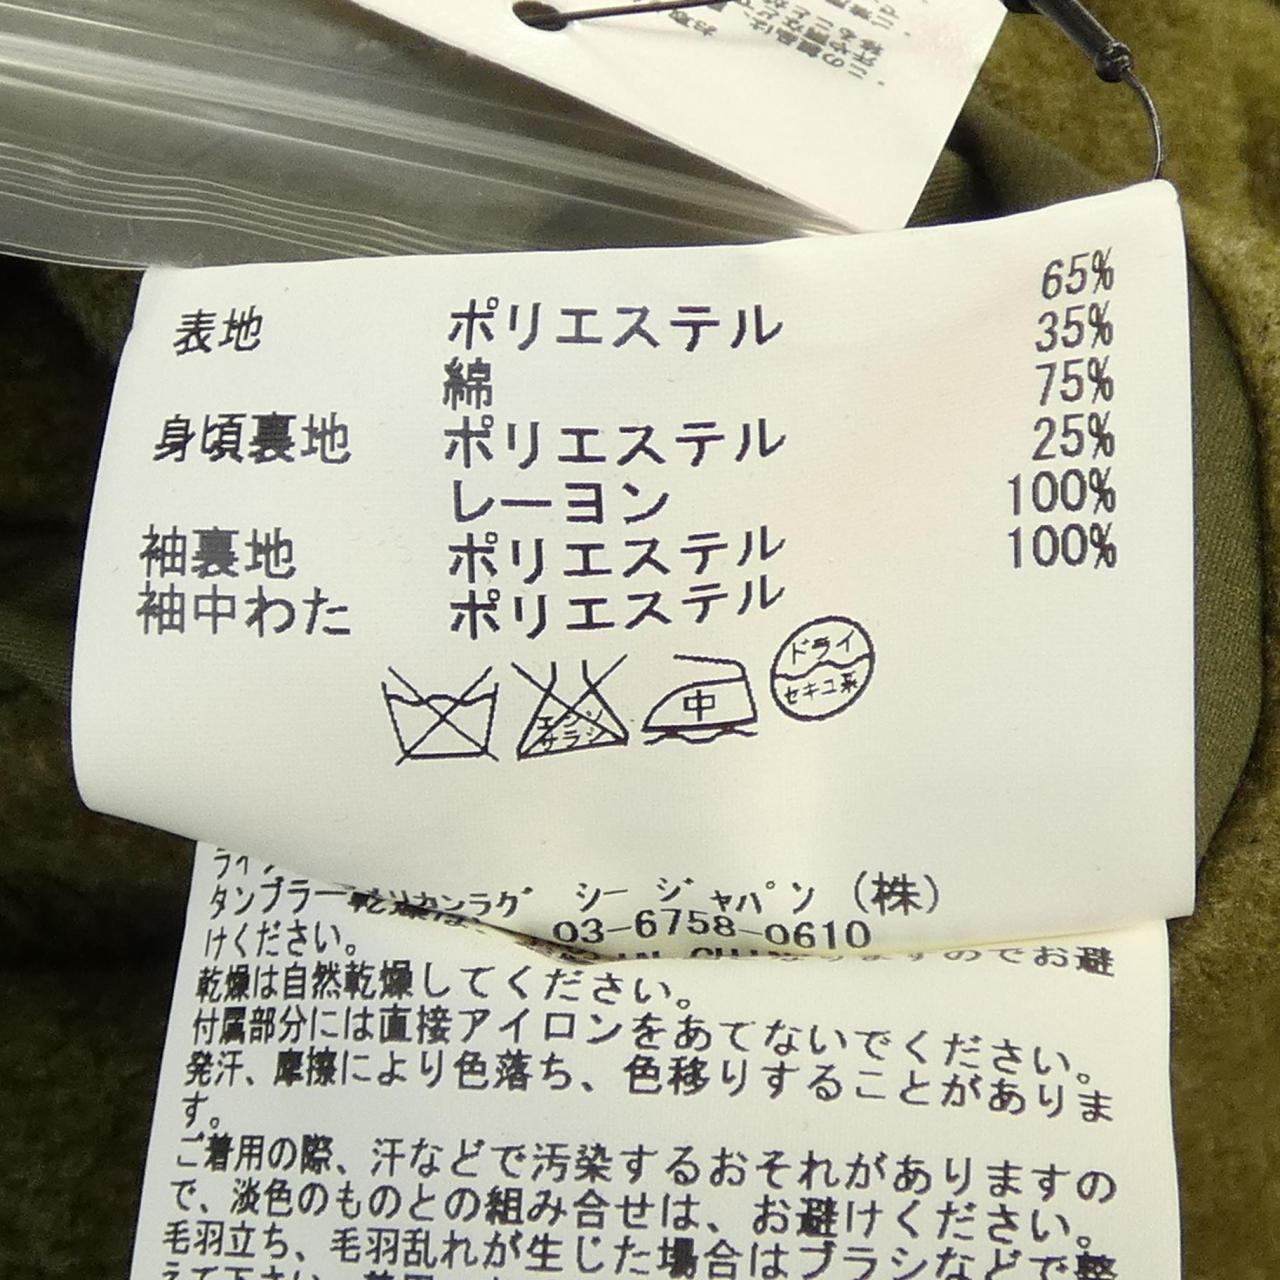 表地 ポリエステル 65%
綿 35%
身頃裏地 ポリエステル 75%
レーヨン 25%
袖裏地 ポリエステル 100%
袖中わた ポリエステル 100%
エンソ
サラシ
中
ドライ
セキユ系
シージャパン (株)
03-6758-0610
タンブラー乾燥
けください。
のでお避
乾燥は自然乾燥してください。
付属部分には直接アイロンをあてないでください。
発汗、摩擦により色落ち、色移りすることがありま
す。
ご着用の際、汗などで汚染するおそれがありますの
で、淡色のものとの組み合せは、お避けください。
毛羽立ち、毛羽乱れが生じた場合はブラシなどで整